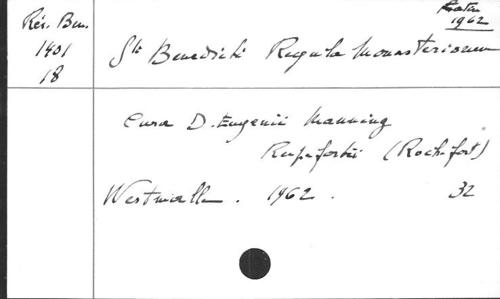 Rés. Ben.
1401
18
1962
Sti Benedicti Regula Monasteriorum
Cura D. Eugenii Manning
Rupefortii (Rochefort)
Westmalle . 1962 . 32